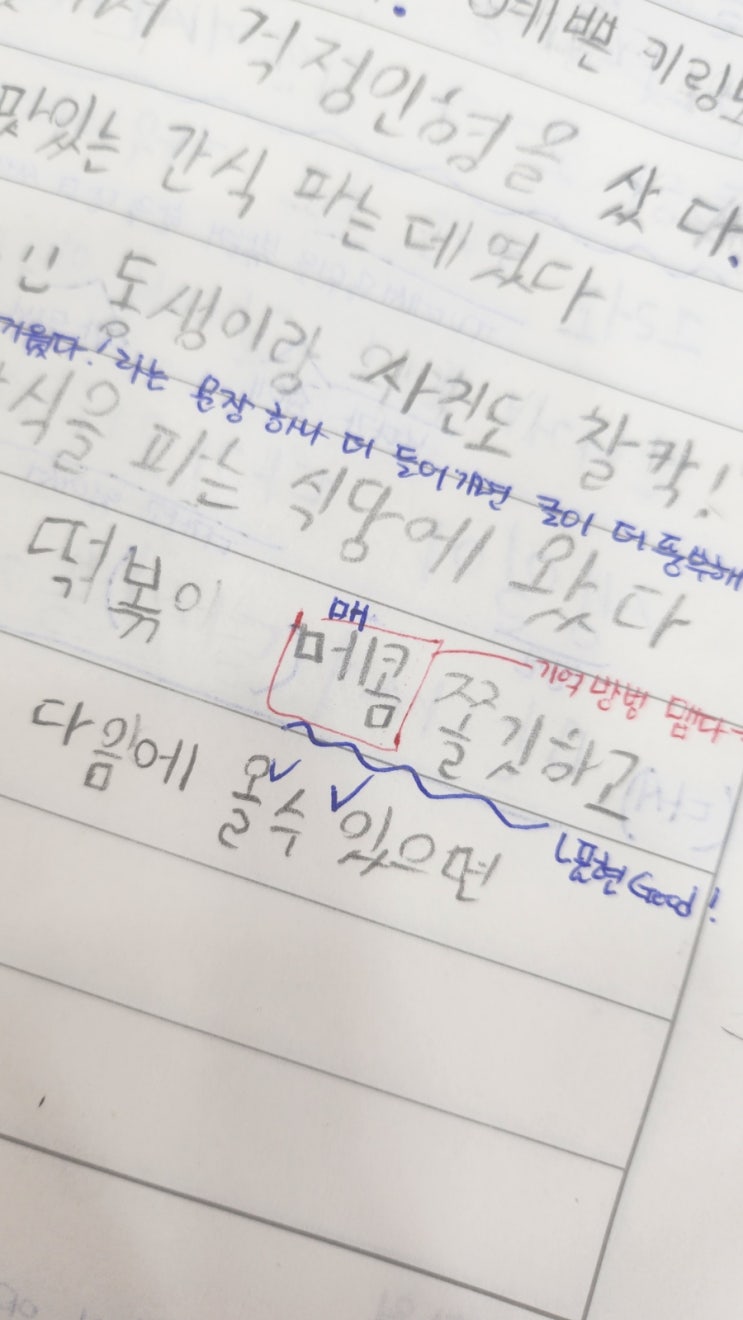 예쁜 키링도
걱정인형을 샀다.
맛있는 간식 파는데 였다
동생이랑 사진도 찰칵!
거웠다! 라는 문장 하나 더 들어가면 글이 더 풍부해
식을 파는 식당에 왔다
매
떡볶이 머콤 쫄깃하고
기억 방법 맵다
다음에 올수 있으면
표현 Good!